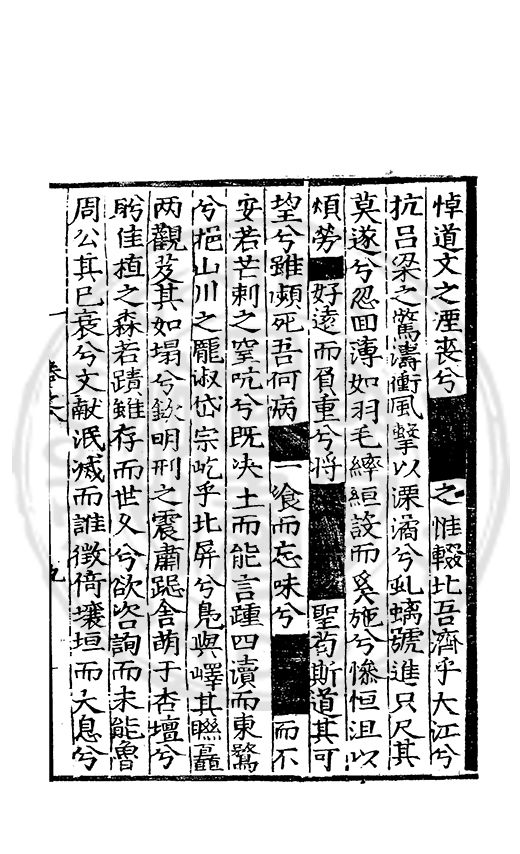 悼道文之湮喪兮■■之惟輟比吾濟乎大江兮
抗吕梁之驚濤衝風擊以漂潏兮虬螭號進只尺其
莫遂兮忽回薄如羽毛繂絙設而奚施兮慘怛沮以
煩勞■好遠而負重兮將■■■聖苟斯道其可
望兮雖頻死吾何病■一飡而忘味兮■■而不
安若芒刺之窒吭兮既决土而能言踵四瀆而東騖
兮挹山川之龐淑岱宗屹乎北屏兮鳧與嶧其聯矗
两觀岌其如塌兮欽明刑之震肅跽舍萌于杏壇兮
盻佳植之森若蹟雖存而世久兮欲咨詢而未能魯
周公其已衰兮文獻泯滅而誰徵倚壞垣而大息兮